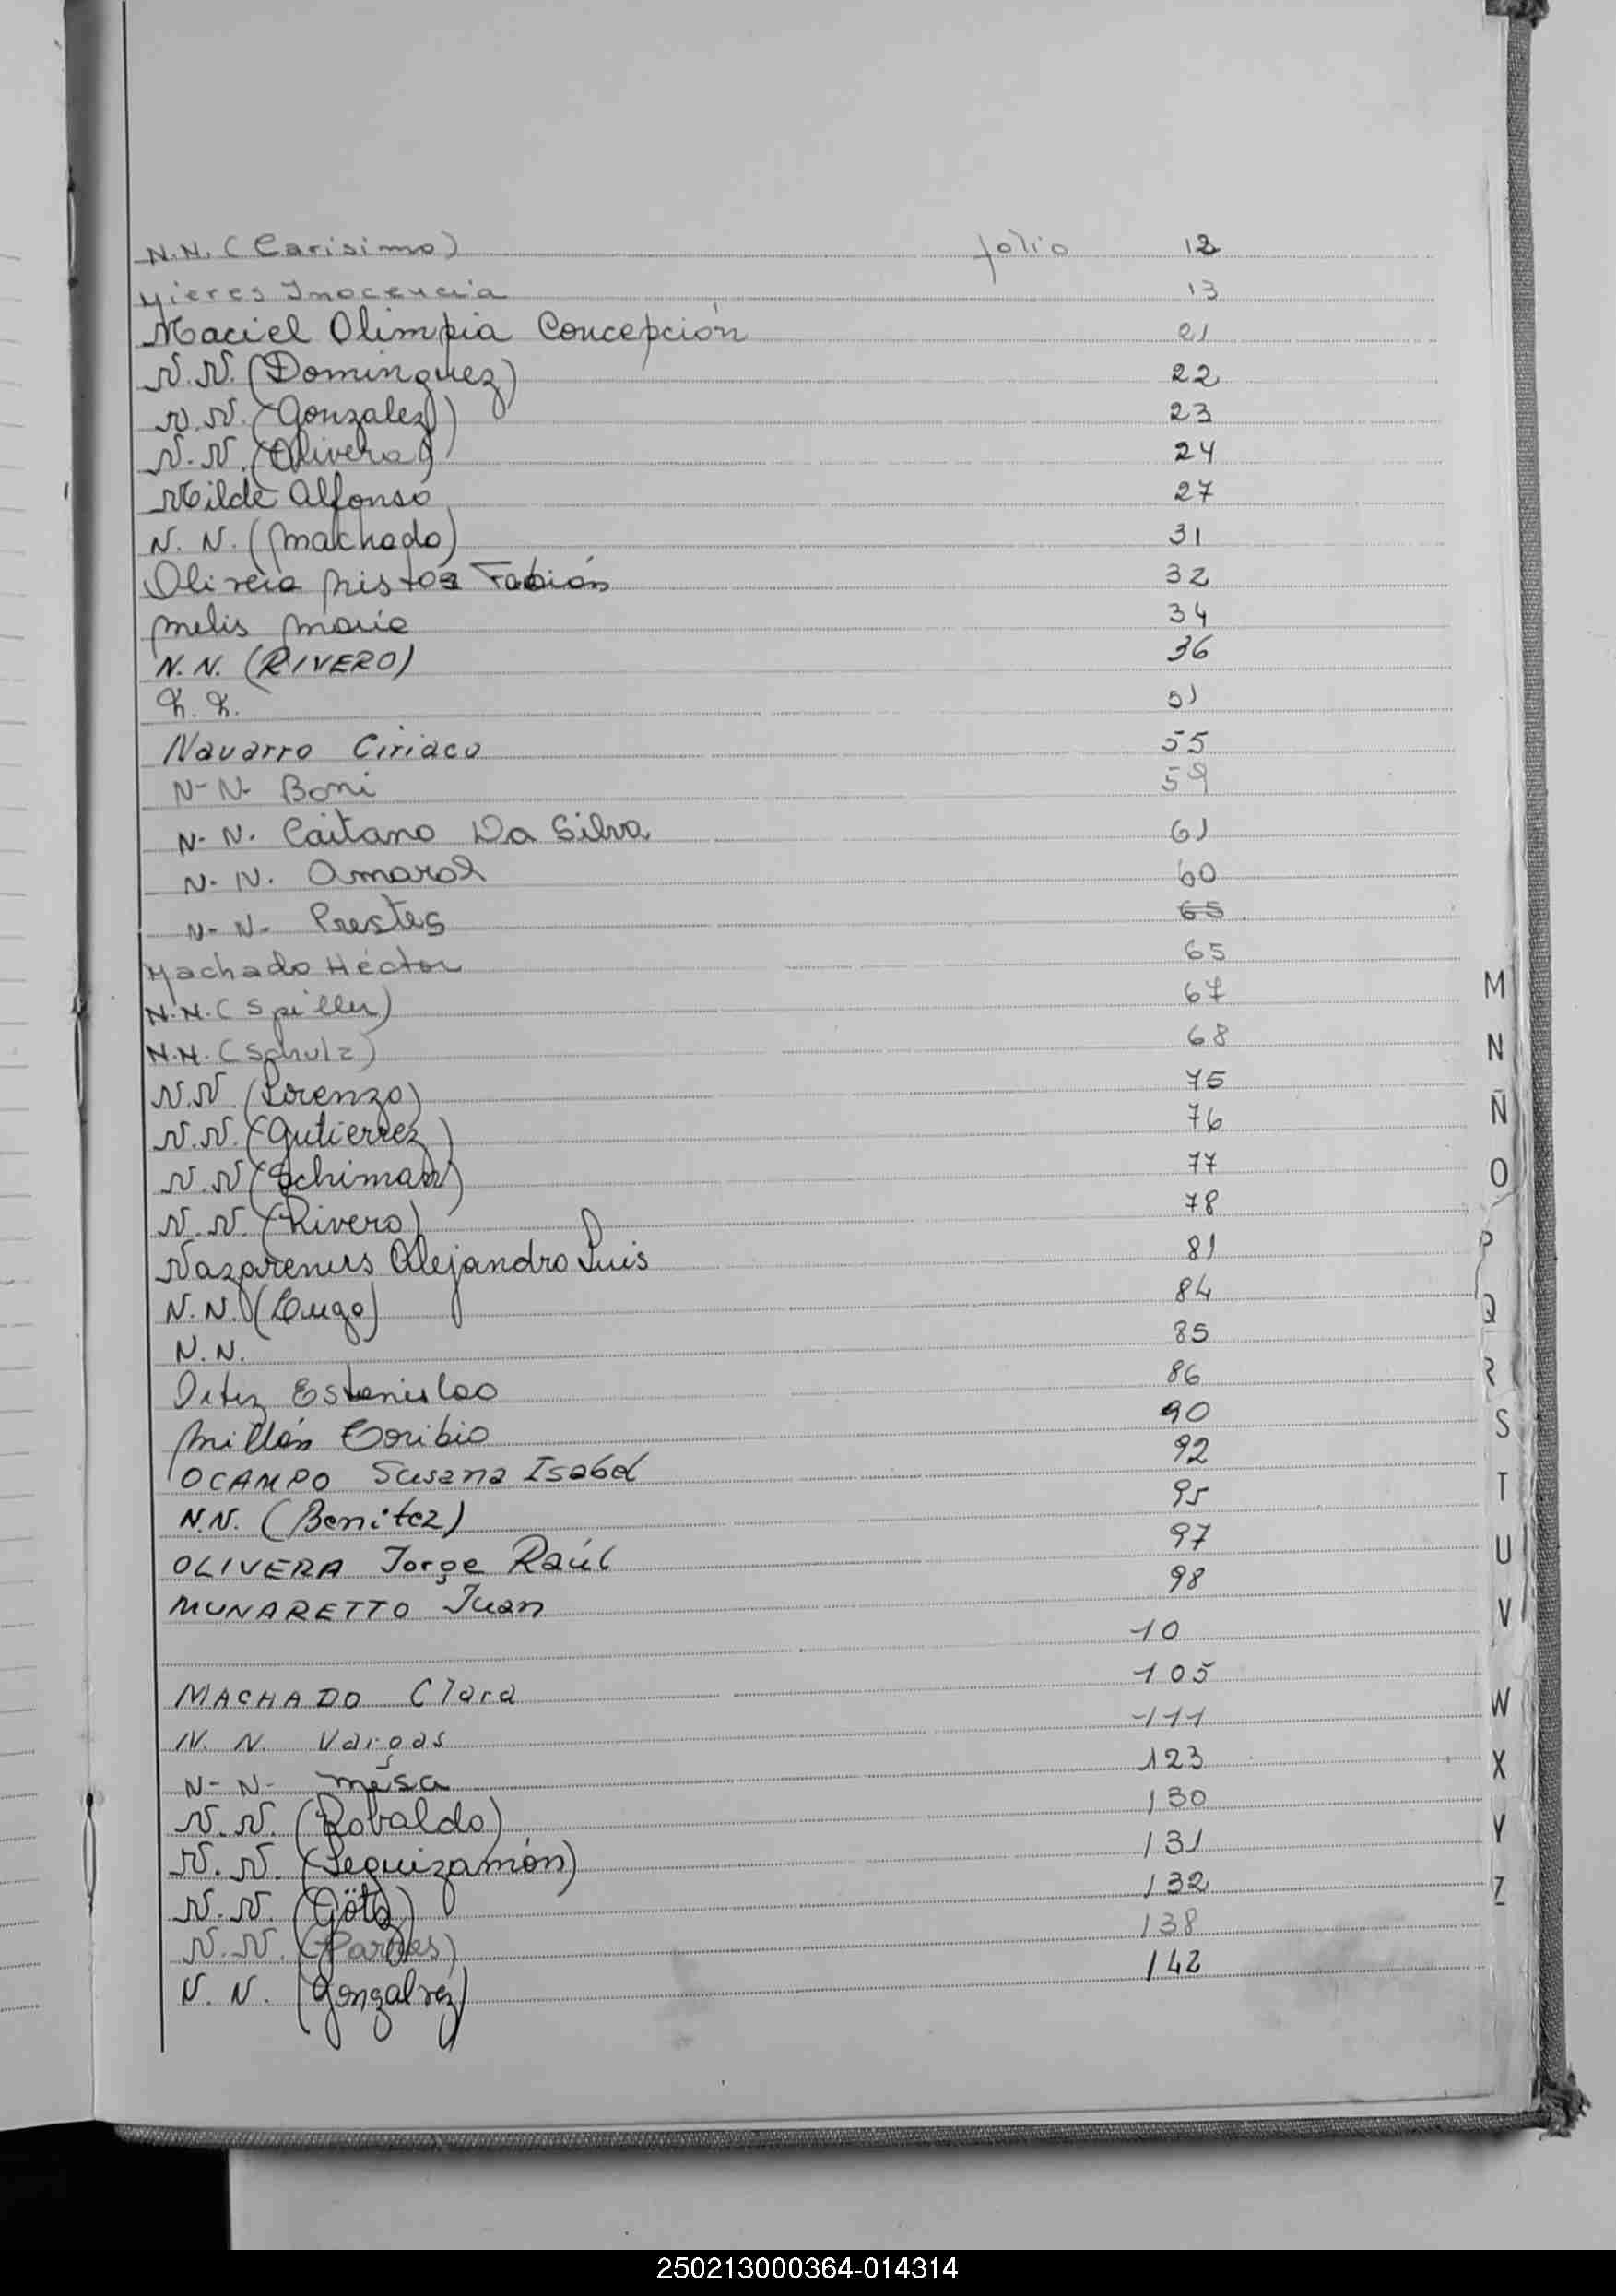 N.N. (Carisimo) folio 12
Mieres Inocencia 13
Maciel Olimpia Concepción 21
N.N. (Dominguez) 22
N.N. (Gonzalez) 23
N.N. (Olivera) 24
Milde Alfonso 27
N.N. (Machado) 31
Fabián 32
Melis María 34
N.N. (RIVERO) 36
N.N. 51
Navarro Ciriaco 55
N-N- Boni 59
N-N. Caitano Da Silva 61
N-N. Amaral 60
N-N- Prestes 65
Machado Héctor 65
N.N. (Spiller) 67
N.N. (Schulz) 68
N.N. (Lorenzo) 75
N.N. (Gutierrez) 76
N.N. 77
N.N. (Rivero) 78
Nazarenus Alejandro Luis 81
N.N. (Lugo) 84
N.N. 85
Ortiz Estanislao 86
Millán Toribio 90
OCAMPO Susana Isabel 92
N.N. (Benitez) 95
OLIVERA Jorge Raúl 97
MUNARETTO Juan 98
10
MACHADO Clara 105
N. N. Vargas 111
N-N- Mesa 123
N.N. (Robaldo) 130
N.N. (Leguizamón) 131
N.N. (Götz) 132
N.N. 138
N.N. (Gonzalvez) 142
M
N
Ñ
O
P
Q
R
S
T
U
V
W
X
Y
Z
250213000364-014314